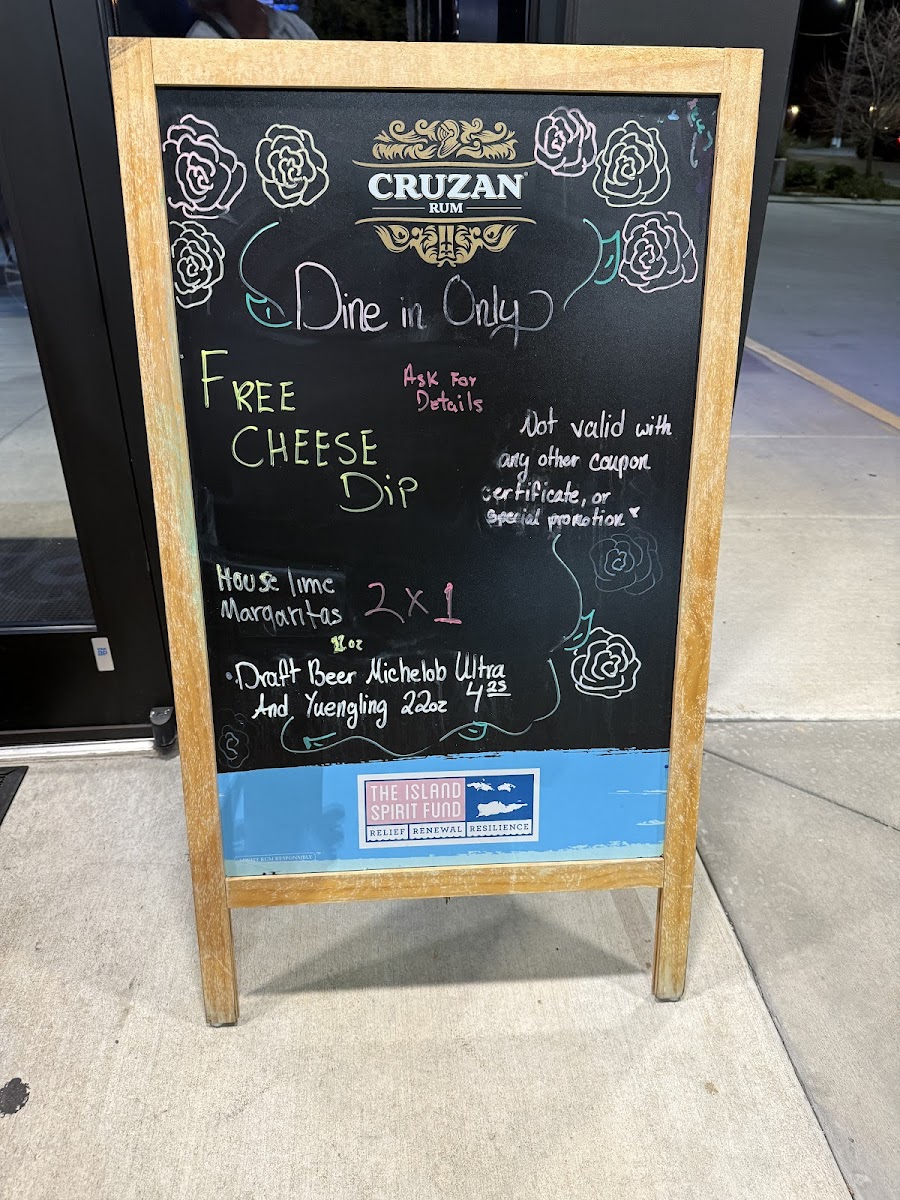 CRUZAN
RUM
Dine in Only
FREE
CHEESE
DiP
Ask For
Details
Not valid with
any other coupon
certificate, or
special promotion
House lime
Margaritas
2x1
oz
Draft Beer Michelob Ultra
And Yuengling 22oz 4 25
THE ISLAND
SPIRIT FUND
RELIEF RENEWAL RESILIENCE